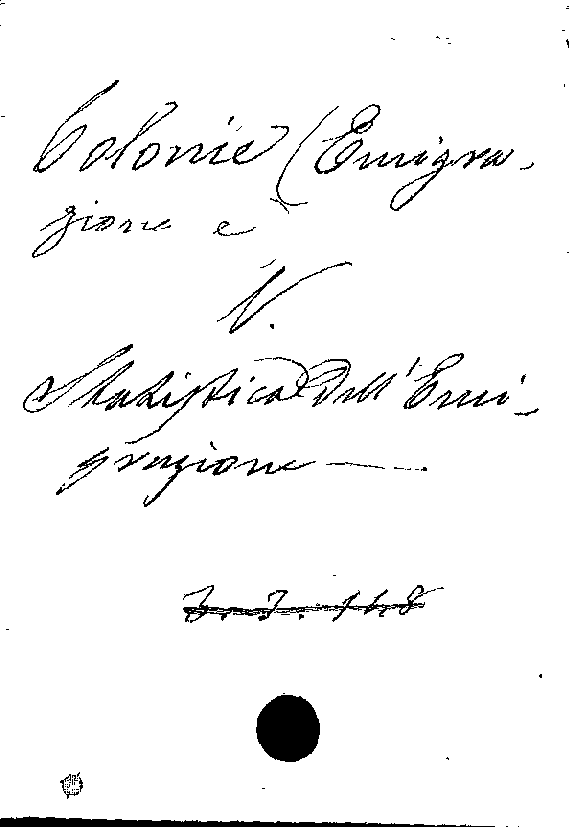 Colonie (Emigra-
zione e
V.
Statistica Dell'Emi-
grazione —.
3. 3. 14.8